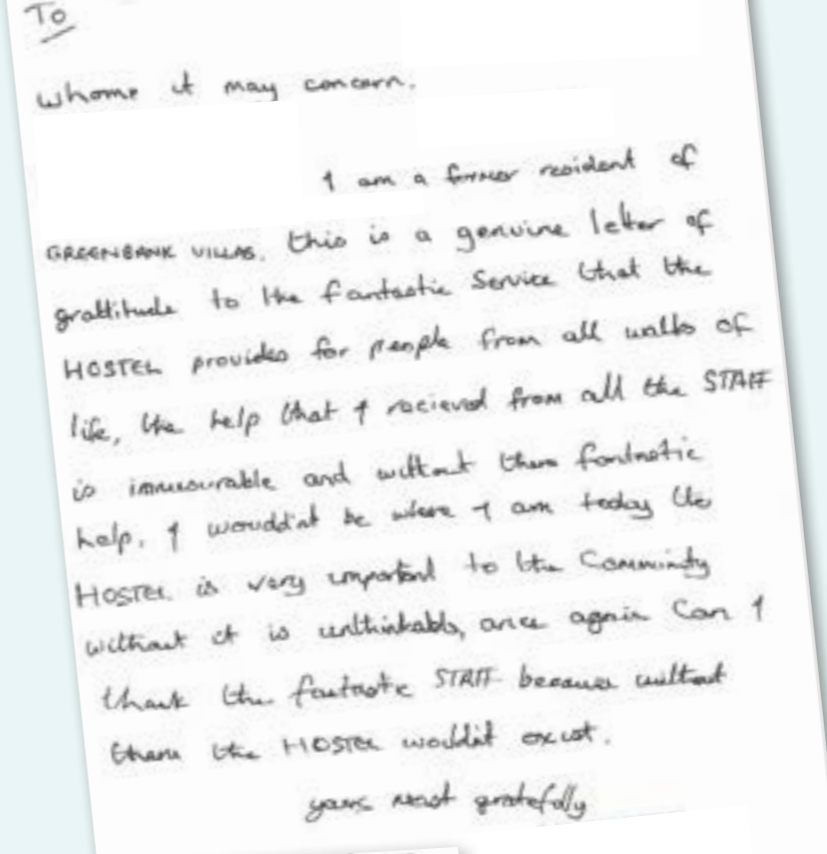 To
whome it may concern.
I am a former resident of
GREENBANK VILLAS. this is a genuine letter of
grattitude to the fantastic Service that the
HOSTEL provides for people from all walks of
life, the help that I recieved from all the STAFF
is immesurable and without there fantastic
help. I wouldn't be where I am today the
HOSTEL is very important to the Community
without it is unthinkable, once again Can I
thank the fantastic STAFF because without
them the HOSTEL wouldn't exist.
yours most gratefully